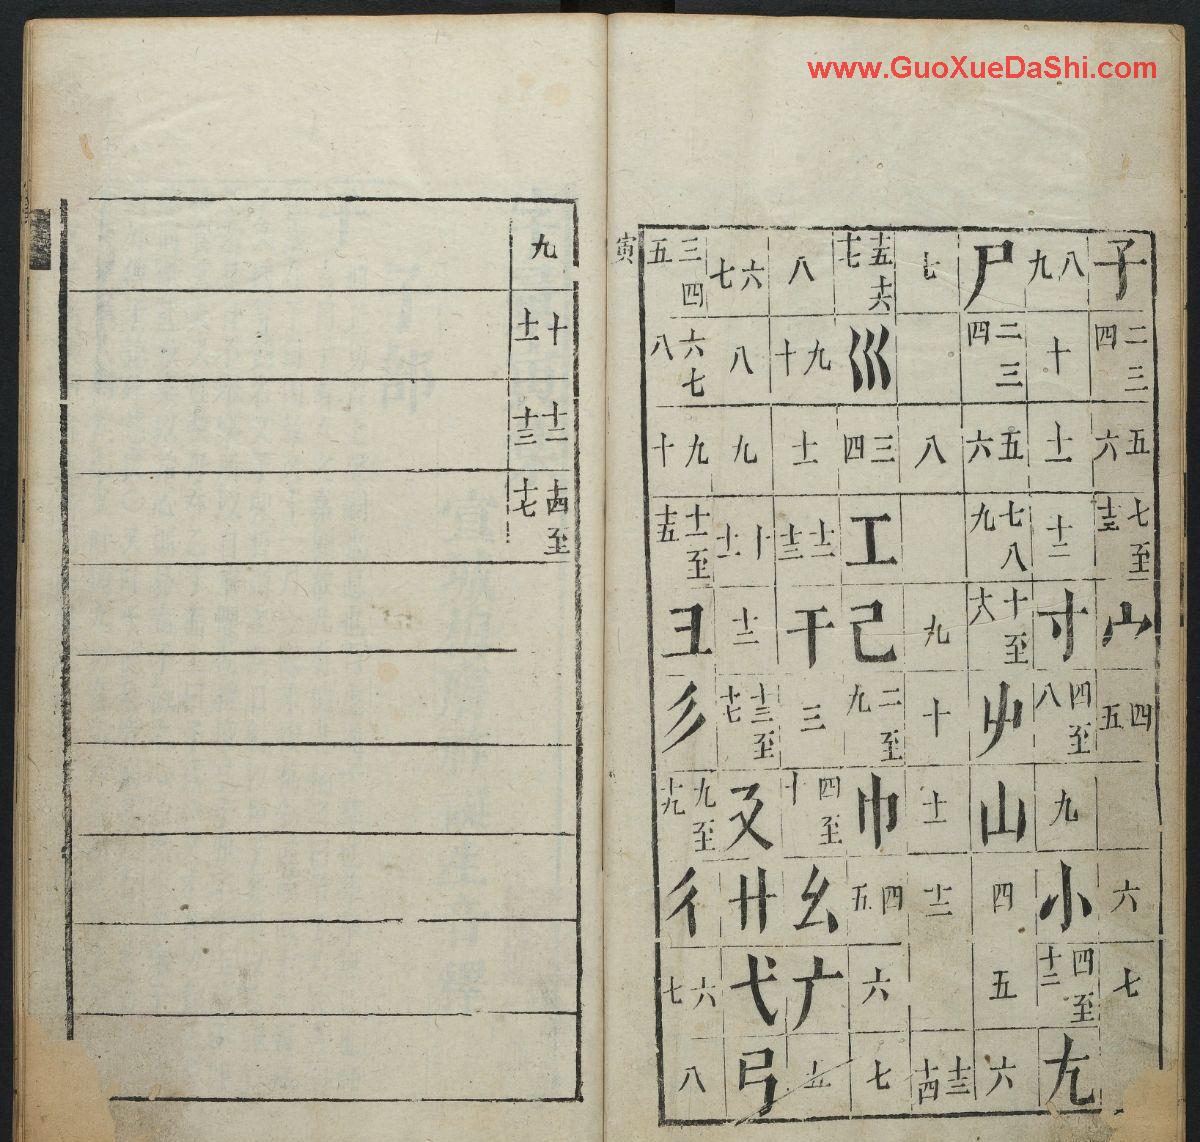 www.GuoXueDaShi.com
子 二三四 五六 七至十三 宀 四五 六 七
八九 十 十一 十二 寸 四至八 九 小 四至十二 尢
尸 二三四 五六 七八九 十至 屮 山 四 五 六
七 八 九 十 十一 十二 十三十四
十五十六十七 巛 三四 工 己 二至九 巾 四五 六 七
八 九十 十一 十二十三 干 三 四至十 幺 广 五
六七 八 九 十十一 十二 十三至十七 廴 廾 弋 弓
三四五 六七八 九十 十一至十五 彐 彡 九至十九 彳 六七 八
寅
九 十十一 十二十三 十四至十七